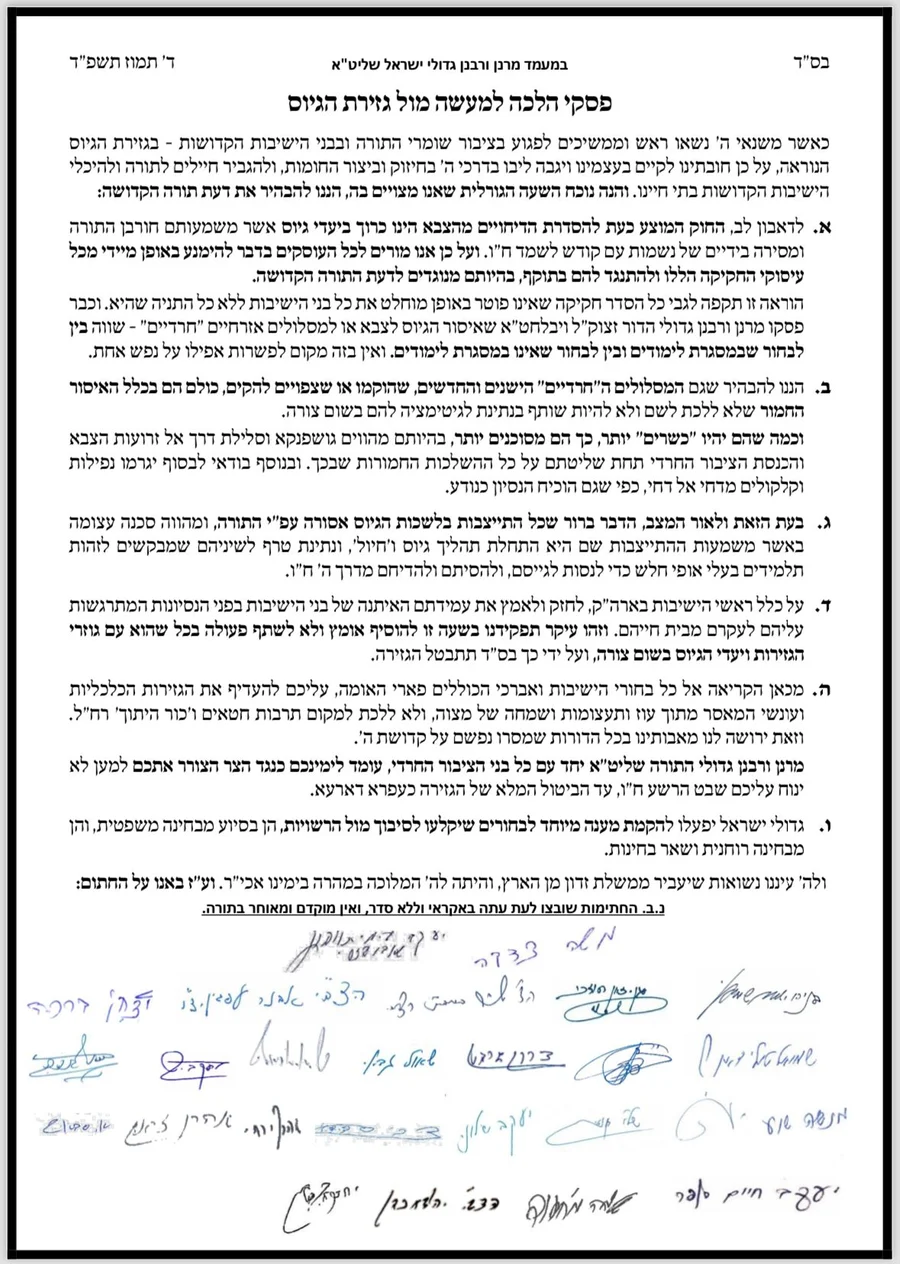 בס"ד
במעמד מרנן ורבנן גדולי ישראל שליט"א
ד' תמוז תשפ"ד
פסקי הלכה למעשה מול גזירת הגיוס
כאשר משנאי ה' נשאו ראש וממשיכים לפגוע בציבור שומרי התורה ובבני הישיבות הקדושות - בגזירת הגיוס
הנוראה, על כן חובתינו לקיים בעצמינו ויגבה ליבו בדרכי ה' בחיזוק וביצור החומות, ולהגביר חיילים לתורה ולהיכלי
הישיבות הקדושות בתי חיינו. והנה נוכח השעה הגורלית שאנו מצויים בה, הננו להבהיר את דעת תורה הקדושה:
א. לדאבון לב, החוק המוצע כעת להסדרת הדיחויים מהצבא הינו כרוך ביעדי גיוס אשר משמעותם חורבן התורה
ומסירה בידיים של נשמות עם קודש לשמד ח"ו. ועל כן אנו מורים לכל העוסקים בדבר להימנע באופן מיידי מכל
עיסוקי החקיקה הללו ולהתנגד להם בתוקף, בהיותם מנוגדים לדעת התורה הקדושה.
הוראה זו תקפה לגבי כל הסדר חקיקה שאינו פוטר באופן מוחלט את כל בני הישיבות ללא כל התניה שהיא. וכבר
פסקו מרנן ורבנן גדולי הדור זצוק"ל ויבלחט"א שאיסור הגיוס לצבא או למסלולים אזרחיים "חרדיים" - שווה בין
לבחור שבמסגרת לימודים ובין לבחור שאינו במסגרת לימודים. ואין בזה מקום לפשרות אפילו על נפש אחת.
ב. הננו להבהיר שגם המסלולים ה"חרדיים" הישנים והחדשים, שהוקמו או שצפויים להקים, כולם הם בכלל האיסור
החמור שלא ללכת לשם ולא להיות שותף בנתינת לגיטימציה להם בשום צורה.
וכמה שהם יהיו "כשרים" יותר, כך הם מסוכנים יותר, בהיותם מהווים גושפנקא וסלילת דרך אל זרועות הצבא
והכנסת הציבור החרדי תחת שליטתם על כל ההשלכות החמורות שבכך. ובנוסף בודאי לבסוף יגרמו נפילות
וקלקולים מדחי אל דחי, כפי שגם הוכיח הנסיון כנודע.
ג. בעת הזאת ולאור המצב, הדבר ברור שכל התייצבות בלשכות הגיוס אסורה עפ"י התורה, ומהווה סכנה עצומה
באשר משמעות ההתייצבות שם היא התחלת תהליך גיוס ו'חיול', ונתינת טרף לשיניהם שמבקשים לזהות
תלמידים בעלי אופי חלש כדי לנסות לגייסם, ולהסיתם ולהדיחם מדרך ה' ח"ו.
ד. על כלל ראשי הישיבות בארה"ק, לחזק ולאמץ את עמידתם האיתנה של בני הישיבות בפני הנסיונות המתרגשות
עליהם לעקרם מבית חייהם. וזהו עיקר תפקידנו בשעה זו להוסיף אומץ ולא לשתף פעולה בכל שהוא עם גוזרי
הגזירות ויעדי הגיוס בשום צורה, ועל ידי כך בס"ד תתבטל הגזירה.
ה. מכאן הקריאה אל כל בחורי הישיבות ואברכי הכוללים פארי האומה, עליכם להעדיף את הגזירות הכלכליות
ועונשי המאסר מתוך עוז ותעצומות ושמחה של מצוה, ולא ללכת למקום תרבות חטאים ו'כור היתוך' רח"ל.
וזאת ירושה לנו מאבותינו בכל הדורות שמסרו נפשם על קדושת ה'.
מרנן ורבנן גדולי התורה שליט"א יחד עם כל בני הציבור החרדי, עומד לימינכם כנגד הצר הצורר אתכם למען לא
ינוח עליכם שבט הרשע ח"ו, עד הביטול המלא של הגזירה כעפרא דארעא.
ו. גדולי ישראל יפעלו להקמת מענה מיוחד לבחורים שיקלעו לסיבוך מול הרשויות, הן בסיוע מבחינה משפטית, והן
מבחינה רוחנית ושאר בחינות.
ולה' עיננו נשואות שיעביר ממשלת זדון מן הארץ, והיתה לה' המלוכה במהרה בימינו אכי"ר. וע"ז באנו על החתום:
נ.ב. החתימות שובצו לעת עתה באקראי וללא סדר, ואין מוקדם ומאוחר בתורה.
משה צדקה
יעקב חיים סופר